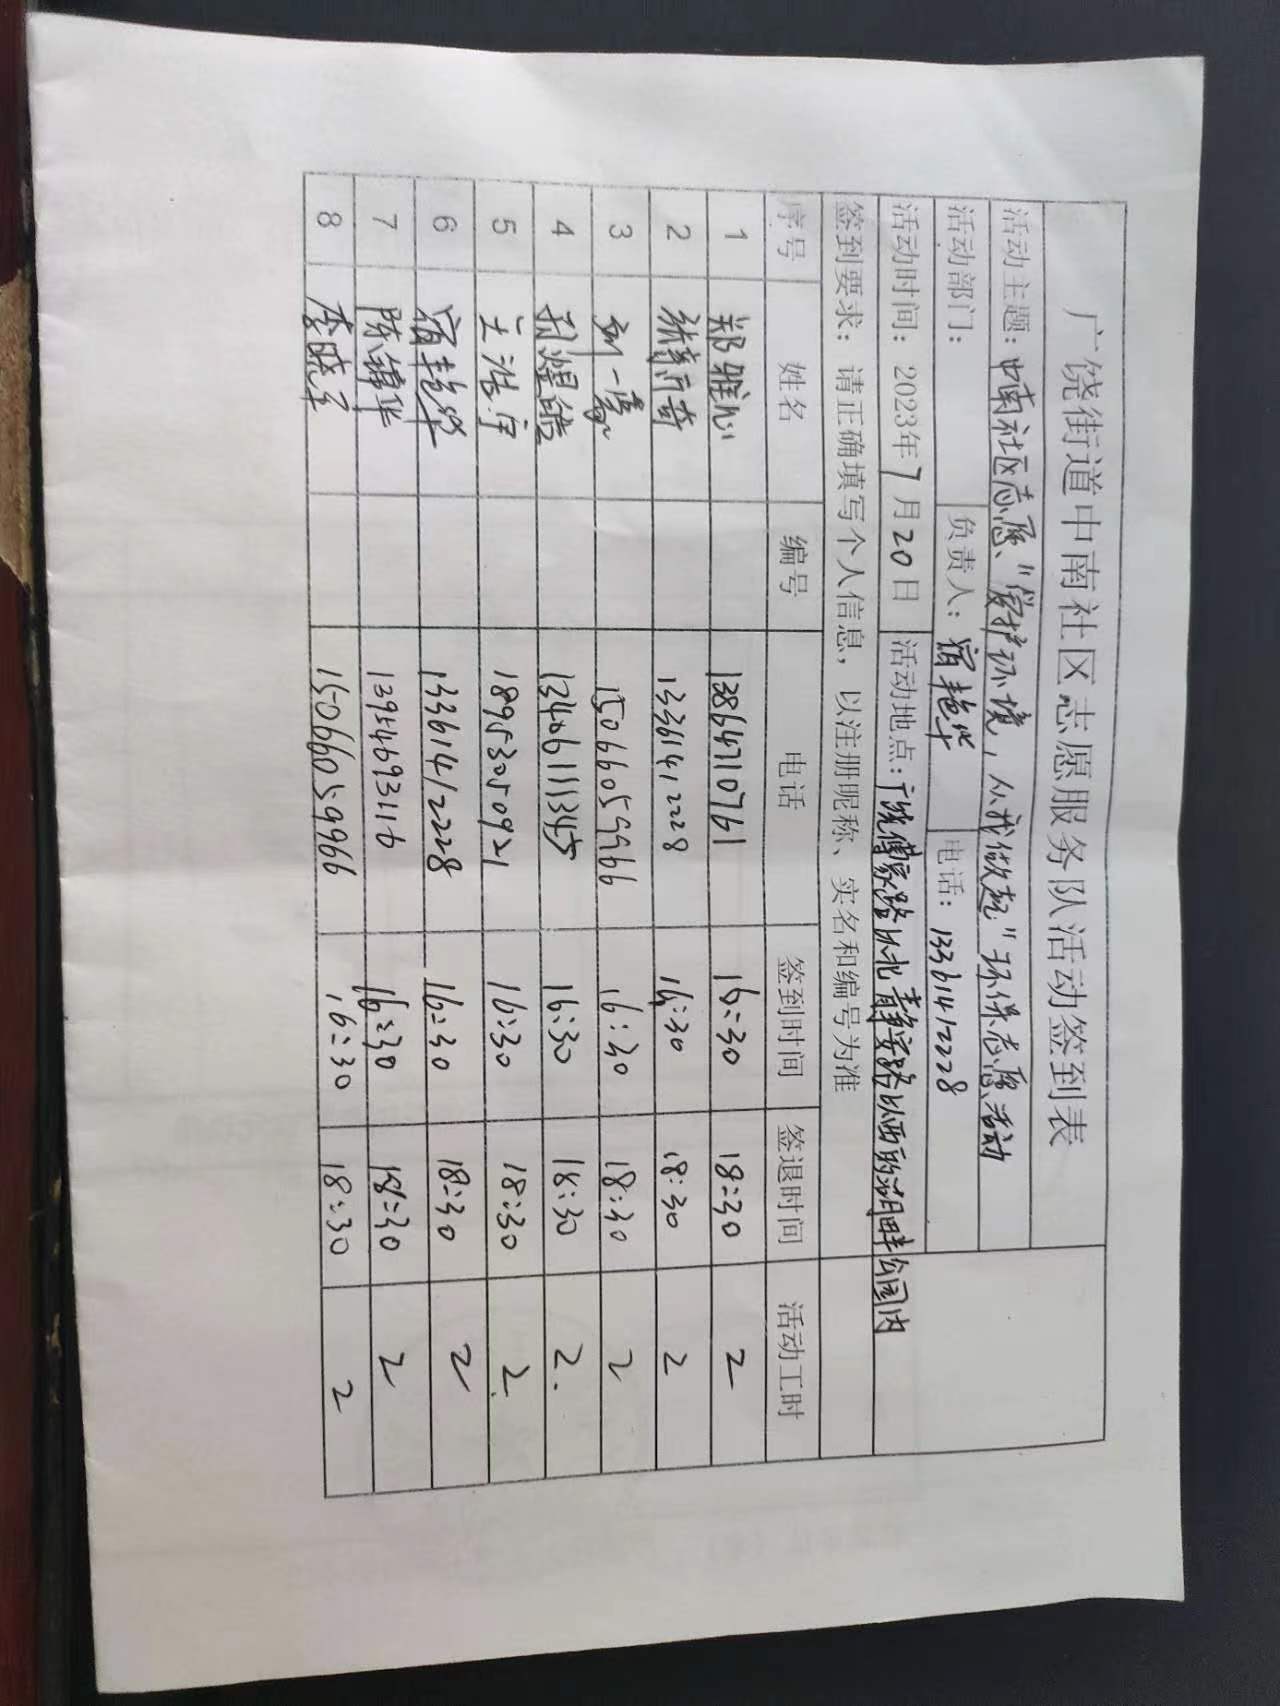 广饶街道中南社区志愿服务队活动签到表
活动主题：中南社区志愿"爱护环境，从我做起"环保志愿活动
活动部门： 负责人：宿艳华 电话：13361412228
活动时间：2023年7月20日 活动地点：广饶傅家路以北静安路以西的湖畔公园内
签到要求：请正确填写个人信息，以注册昵称、实名和编号为准
序号 姓名 编号 电话 签到时间 签退时间 活动工时
1 郑雅心 13864710761 16:30 18:30 2
2 13361412228 16:30 18:30 2
3 刘一 15066059966 16:30 18:30 2
4 煜皓 13406111345 16:30 18:30 2
5 王浩宇 18953050921 16:30 18:30 2
6 宿艳华 13361412228 16:30 18:30 2
7 陈锦华 13954693116 16:30 18:30 2
8 李晓 15066059966 16:30 18:30 2